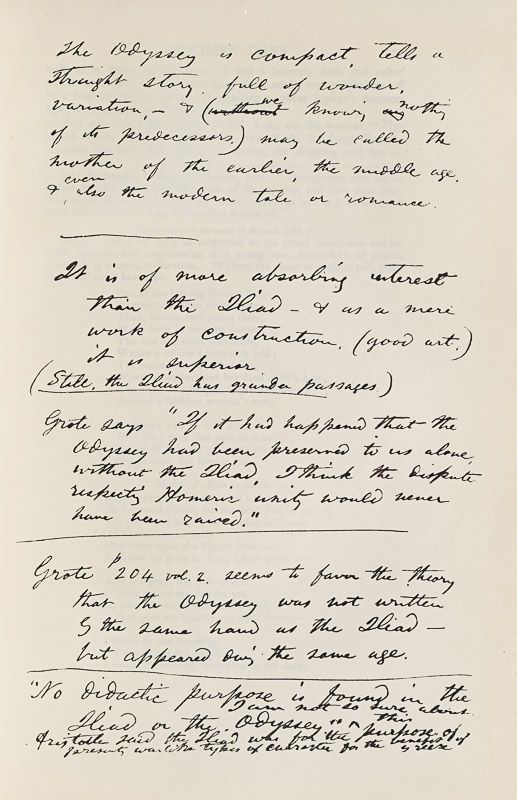 The Odyssey is compact, tells a
straight story, full of wonder,
variation, — & (without we knowing any nothing
of its predecessors.) may be called the
mother of the earlier, the middle age,
& even also the modern tale or romance.
It is of more absorbing interest
than the Iliad — & as a mere
work of construction, (good art.)
it is superior
(Still, the Iliad has grander passages)
Grote says "If it had happened that the
Odyssey had been preserved to us alone,
without the Iliad, I think the dispute
respecting Homeric unity would never
have been raised."
Grote p 204 vol. 2. seems to favor the theory
that the Odyssey was not written
by the same hand as the Iliad —
but appeared during the same age.
"No didactic purpose is found in the
Iliad or the Odyssey"
I am not so sure about this
Aristotle said the Iliad was for the purpose of
presenting types of character for the benefit of
Greece